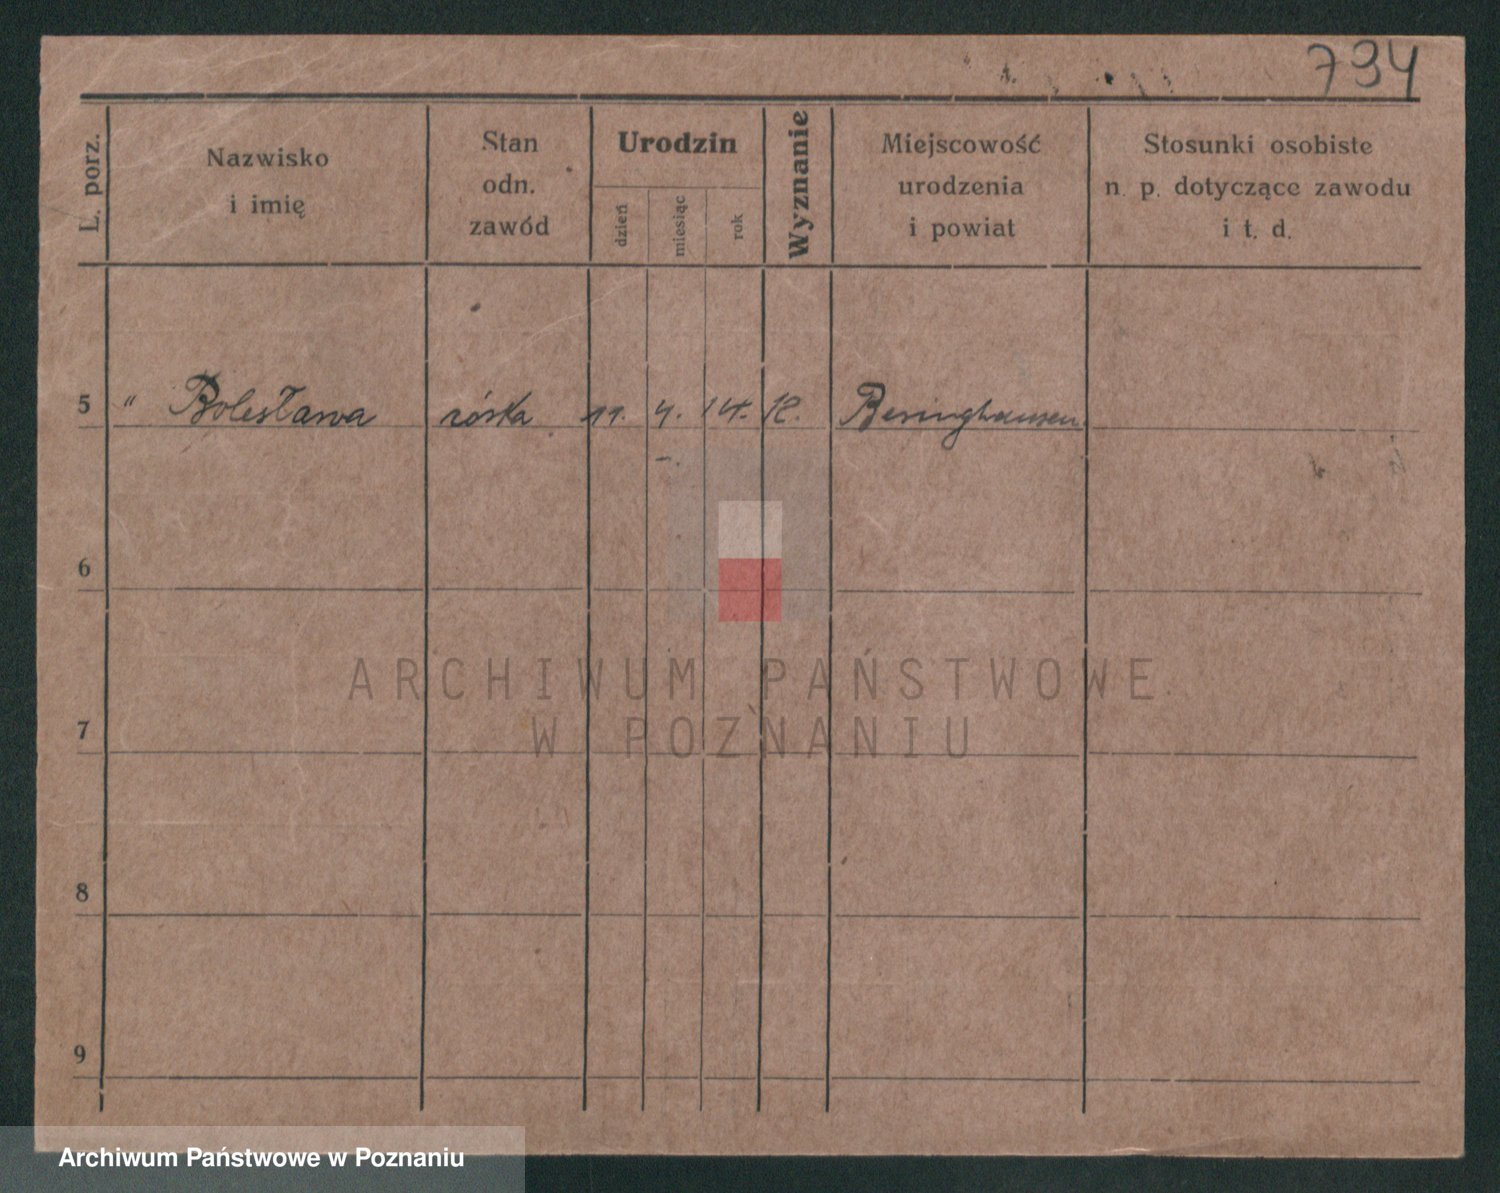 794
L. porz.
Nazwisko
i imię
Stan
odn.
zawód
Urodzin
dzień
miesiąc
rok
Wyznanie
Miejscowość
urodzenia
i powiat
Stosunki osobiste
n. p. dotyczące zawodu
i t. d.
5 " Bolesława córka 11. 4. 14. K. Beringhausen
6
7
8
9
ARCHIWUM PAŃSTWOWE
W POZNANIU
Archiwum Państwowe w Poznaniu